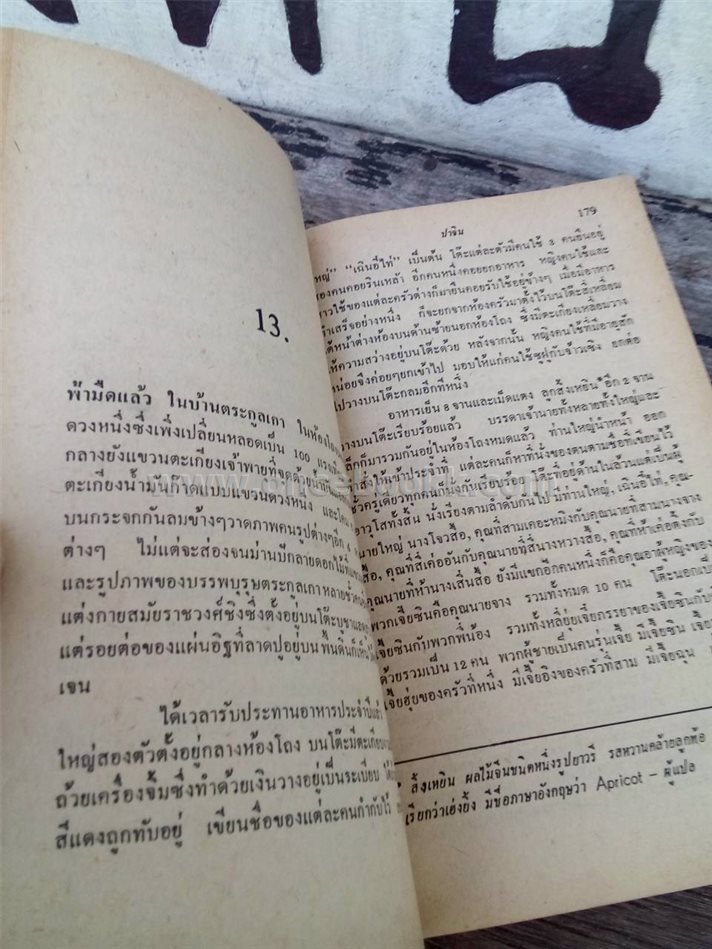 13.
ฟ้ามืดแล้ว ในบ้านตระกูลเกา
ดวงหนึ่งซึ่งเพิ่งเปลี่ยนหลอดเป็น 100 แรงเทียน
กลางยังแขวนตะเกียงเจ้าพายุที่จุดด้วยน้ำมัน
ตะเกียงน้ำมันก๊าดแบบแขวนดวงหนึ่ง
บนกระจกกันลมข้างๆวาดภาพคนรูปต่างๆอีก
ต่างๆ ไม่แต่จะส่องจนม่านปักลายดอกไม้
และรูปภาพของบรรพบุรุษตระกูลเกาหลายชั่วคน
แต่งกายสมัยราชวงศ์ชิงซึ่งตั้งอยู่บนโต๊ะบูชา
แต่รอยต่อของแผ่นอิฐที่ลาดปูอยู่บนพื้นดินก็เห็น
เจน
ได้เวลารับประทานอาหารประจำปีแล้ว
ใหญ่สองตัวตั้งอยู่กลางห้องโถง บนโต๊ะมีตะเกียบ
ถ้วยเครื่องจิ้มซึ่งทำด้วยเงินวางอยู่เป็นระเบียบ
สีแดงถูกทับอยู่ เขียนชื่อของแต่ละคนกำกับไว้
ปาจิน 179
ใหญ่” “เฉินอี๋ไท่” เป็นต้น โต๊ะแต่ละตัวมีคนใช้ 3 คนยืนอยู่
สองคนคอยรินเหล้า อีกคนหนึ่งคอยออกอาหาร หญิงคนใช้และ
สาวใช้ของแต่ละครัวต่างก็มายืนคอยรับใช้อยู่ข้างๆ เมื่อมีอาหาร
ทำเสร็จอย่างหนึ่ง ก็จะยกจากห้องครัวมาตั้งไว้บนโต๊ะสี่เหลี่ยม
ใต้หน้าต่างห้องบนด้านซ้ายนอกห้องโถง ซึ่งมีตะเกียงเหลี่ยมวาง
ให้ความสว่างอยู่บนโต๊ะด้วย หลังจากนั้น หญิงคนใช้ที่มีอายุสัก
หน่อยจึงค่อยๆยกเข้าไป มอบให้แก่คนใช้ซูฟู่กับจ้าวเซิง ยกต่อ
ไปวางบนโต๊ะกลมอีกทีหนึ่ง
อาหารเย็น 8 จานและเม็ดแตง ลูกสิ้งเหยิน อีก 2 จาน
วางบนโต๊ะเรียบร้อยแล้ว บรรดาเจ้านายทั้งหลายทั้งใหญ่และ
เล็กก็มารวมกันอยู่ในห้องโถงหมดแล้ว ท่านใหญ่นำหน้า ออก
สั่งให้เข้าประจำที่ แต่ละคนก็หาที่นั่งของตนตามชื่อที่เขียนไว้
ชั่วครู่เดียวทุกคนก็นั่งกันเรียบร้อย โต๊ะที่อยู่ด้านในล้วนแต่เป็นผู้
อาวุโสทั้งสิ้น นั่งเรียงตามลำดับกันไป มีท่านใหญ่, เฉินอี๋ไท่, คุณ-
นายใหญ่ นางโจวสื้อ, คุณที่สามเคอะหมิงกับคุณนายที่สามนางจาง
สื้อ, คุณที่สี่เค่ออันกับคุณนายที่สี่นางหวางสื้อ, คุณที่ห้าเค่อติ้งกับ
คุณนายที่ห้านางเสิ่นสื้อ ยังมีแขกอีกคนหนึ่งก็คือคุณอาผู้หญิงของ
พวกเจี๋ยซินคือคุณนายจาง รวมทั้งหมด 10 คน โต๊ะนอกเป็น
เจี๋ยซินกับพวกพี่น้อง รวมทั้งหลี่ย่ยเจี๋ยภรรยาของเจี๋ยซินก็
ด้วยรวมเป็น 12 คน พวกผู้ชายเป็นคนรุ่นเจี๋ย มีเจี๋ยซิน เจี๋ย
เจี๋ยฮุ่ยของครัวที่หนึ่ง มีเจี๋ยอิงของครัวที่สาม มีเจี๋ยฉุน
สิ้งเหยิน ผลไม้จีนชนิดหนึ่งรูปยาวรี รสหวานคล้ายลูกท้อ
เรียกว่าเฮ่งยิ้ง มีชื่อภาษาอังกฤษว่า Apricot – ผู้แปล